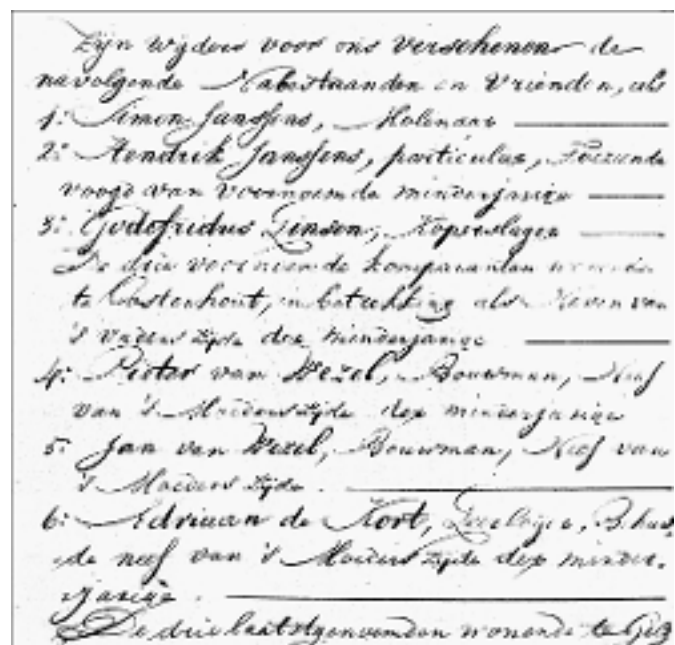 Zijn wijders voor ons verschenen de
navolgende Nabestaanden en Vrienden, als
1: Simon Janssens, Molenaar
2: Hendrik Janssens, particulier, Toeziende
voogd van voornoemde minderjarige
3: Godefridus Linsen, Koperslager
De drie voornoemde komparanten
te Oosterhout, in betrekking als Neven van
's vaders zijde der minderjarige
4: Pieter van Wezel, Bouwman, Neef
van 's Moeders zijde der minderjarige
5: Jan van Wezel, Bouwman, Neef van
's Moeders zijde.
6: Adriaan de Kort,
de neef van 's Moeders zijde der minder-
jarige.
De drie laatstgenoemden wonende te